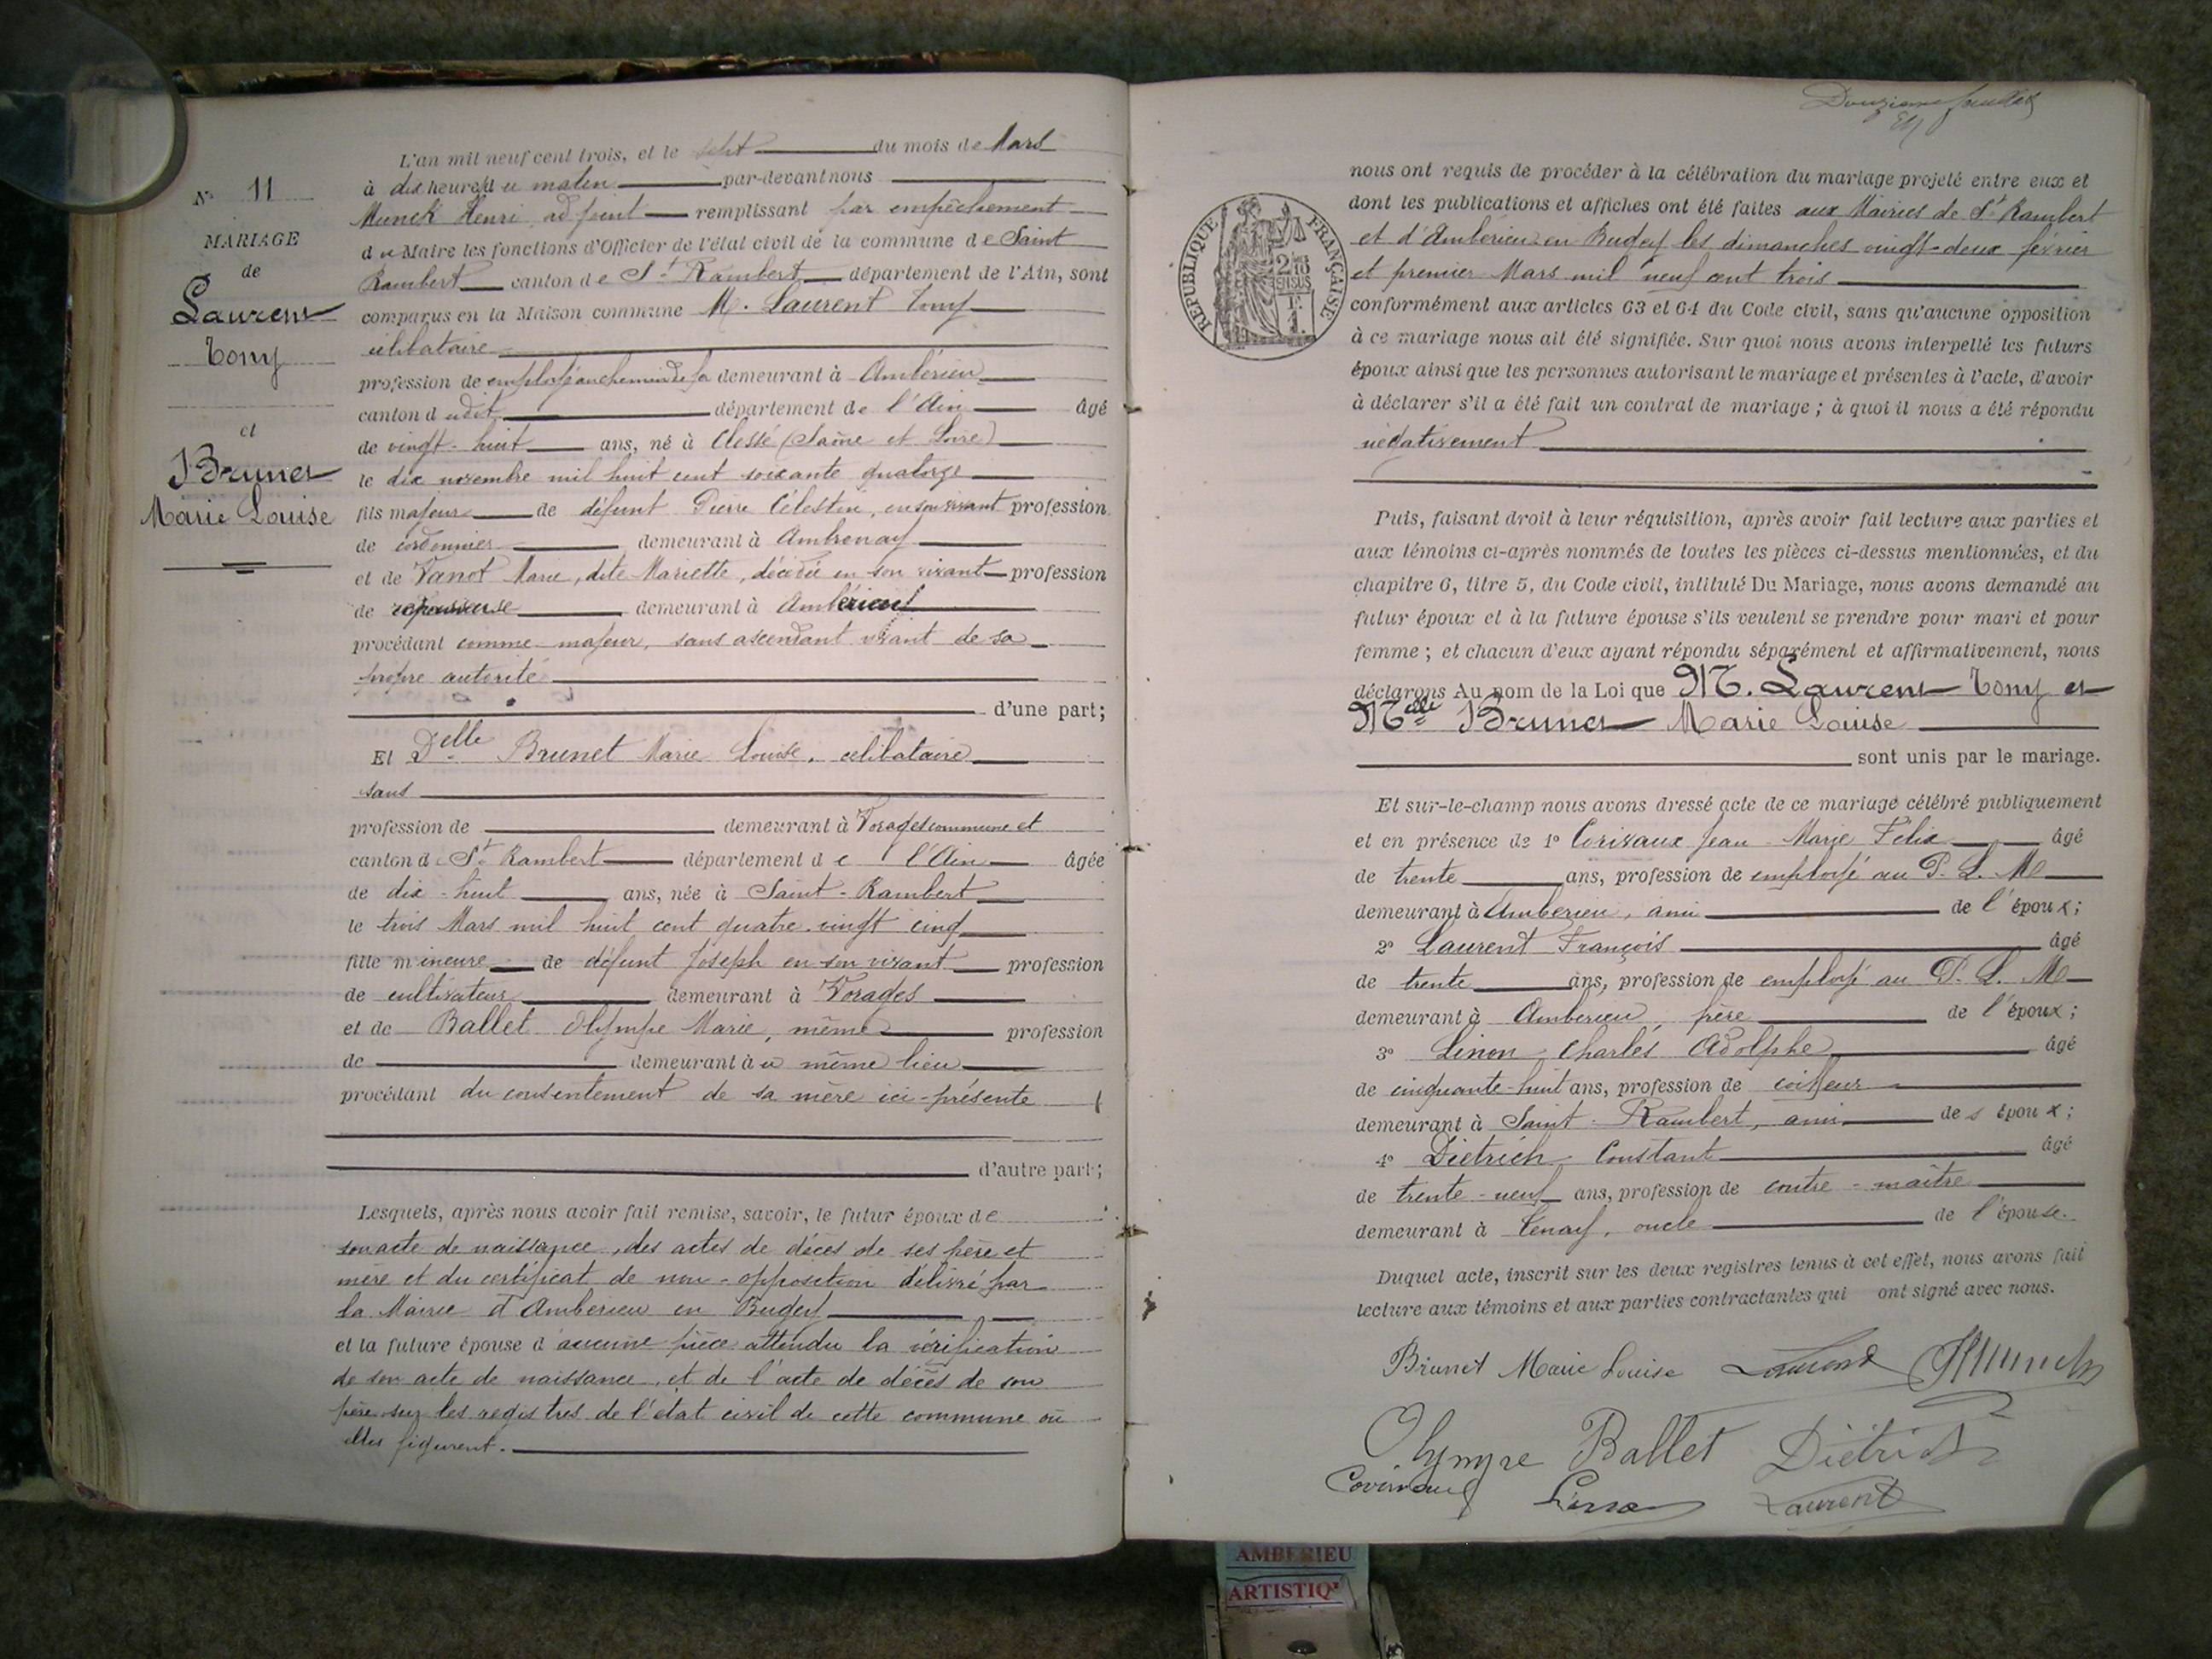 N° 11
MARIAGE
de
Laurent
Tony
et
Brunet
Marie Louise
L'an mil neuf cent trois, et le sept du mois de Mars
à dix heures du matin par-devant nous
Munck Henri, adjoint remplissant par empêchement
du Maire les fonctions d'Officier de l'état civil de la commune de Saint
Rambert canton de St Rambert département de l'Ain, sont
comparus en la Maison commune M. Laurent Tony
célibataire
profession de employé au chemin de fer demeurant à Ambérieu
canton dudit département de l'Ain âgé
de vingt-huit ans, né à Clessé (Saône et Loire)
le dix novembre mil huit cent soixante quatorze
fils majeur de défunt Pierre Célestin, en son vivant profession
de cordonnier demeurant à Ambronay
et de Vanot Marie, dite Mariette, décédée en son vivant profession
de repasseuse demeurant à Ambérieu
procédant comme majeur, sans ascendant vivant de sa
propre autorité
d'une part;
Et Delle Brunet Marie Louise, célibataire
sans
profession de demeurant à Vorages commune et
canton de St Rambert département de l'Ain âgée
de dix-huit ans, née à Saint-Rambert
le trois Mars mil huit cent quatre-vingt cinq
fille mineure de défunt Joseph en son vivant profession
de cultivateur demeurant à Vorages
et de Ballet Olympe Marie, même profession
de demeurant au même lieu
procédant du consentement de sa mère ici-présente
d'autre part;
Lesquels, après nous avoir fait remise, savoir, le futur époux de
son acte de naissance, des actes de décès de ses père et
mère et du certificat de non-opposition délivré par
la Mairie d'Ambérieu en Bugey
et la future épouse d'aucune pièce attendu la vérification
de son acte de naissance, et de l'acte de décès de son
père sur les registres de l'état civil de cette commune où
elles figurent.
Douzième feuillet
RÉPUBLIQUE FRANÇAISE
2/10 EN SUS
1F.
nous ont requis de procéder à la célébration du mariage projeté entre eux et
dont les publications et affiches ont été faites aux Mairies de St Rambert
et d'Ambérieu en Bugey les dimanches vingt-deux février
et premier Mars mil neuf cent trois
conformément aux articles 63 et 64 du Code civil, sans qu'aucune opposition
à ce mariage nous ait été signifiée. Sur quoi nous avons interpellé les futurs
époux ainsi que les personnes autorisant le mariage et présentes à l'acte, d'avoir
à déclarer s'il a été fait un contrat de mariage; à quoi il nous a été répondu
négativement
Puis, faisant droit à leur réquisition, après avoir fait lecture aux parties et
aux témoins ci-après nommés de toutes les pièces ci-dessus mentionnées, et du
chapitre 6, titre 5, du Code civil, intitulé Du Mariage, nous avons demandé au
futur époux et à la future épouse s'ils veulent se prendre pour mari et pour
femme; et chacun d'eux ayant répondu séparément et affirmativement, nous
déclarons Au nom de la Loi que M. Laurent Tony et
Melle Brunet Marie Louise
sont unis par le mariage.
Et sur-le-champ nous avons dressé acte de ce mariage célébré publiquement
et en présence de 1° Corivaux Jean Marie Felix âgé
de trente ans, profession de employé au P. L. M
demeurant à Ambérieu, ami de l'époux;
2° Laurent François âgé
de trente ans, profession de employé au P. L. M
demeurant à Ambérieu, frère de l'époux;
3° Linon Charles Adolphe âgé
de cinquante-huit ans, profession de coiffeur
demeurant à Saint-Rambert, ami des époux;
4° Dietrich Constant âgé
de trente-neuf ans, profession de contre-maître
demeurant à Tenay, oncle de l'épouse.
Duquel acte, inscrit sur les deux registres tenus à cet effet, nous avons fait
lecture aux témoins et aux parties contractantes qui ont signé avec nous.
Brunet Marie Louise Laurent HMunck
Olympe Ballet Diétrich
Corivaux Laurent
AMBERIEU
ARTISTIQ